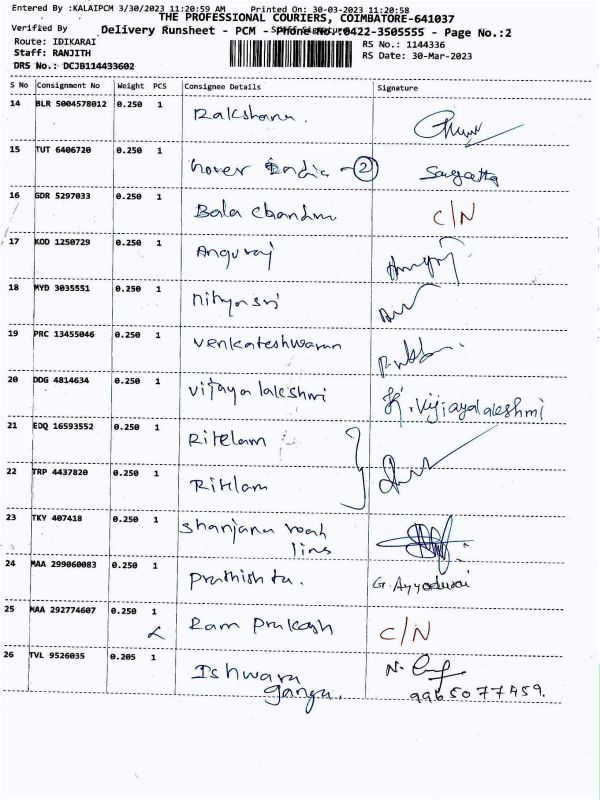 Entered By :KALAIPCM 3/30/2023 11:20:59 AM Printed On: 30-03-2023 11:20:58
THE PROFESSIONAL COURIERS, COIMBATORE-641037
Verified By
Delivery Runsheet - PCM - Phone No.:0422-3505555 - Page No.:2
Route: IDIKARAI
RS No.: 1144336
Staff: RANJITH
RS Date: 30-Mar-2023
DRS No.: DCJB114433602
S No Consignment No Weight PCS Consignee Details Signature
14 BLR 5004578012 0.250 1 Rakshana.
15 TUT 6406720 0.250 1 hover India - 2
16 GDR 5297033 0.250 1 Bala Chandru C/N
17 KOD 1250729 0.250 1 Anguraj
18 MYD 3035551 0.250 1 nithya sri
19 PRC 13455046 0.250 1 venkateshwaran
20 DDG 4814634 0.250 1 vijaya lakshmi K. Vijiayalakshmi
21 EDQ 16593552 0.250 1 Ritelam
22 TRP 4437820 0.250 1 Ritelam
23 TKY 407418 0.250 1 Shanjana
lins
24 MAA 299060083 0.250 1 Prathishta. G. Ayyadurai
25 MAA 292774607 0.250 1 Ram Prakash C/N
26 TVL 9526035 0.205 1 Ishwara
ganga. 9965077459.